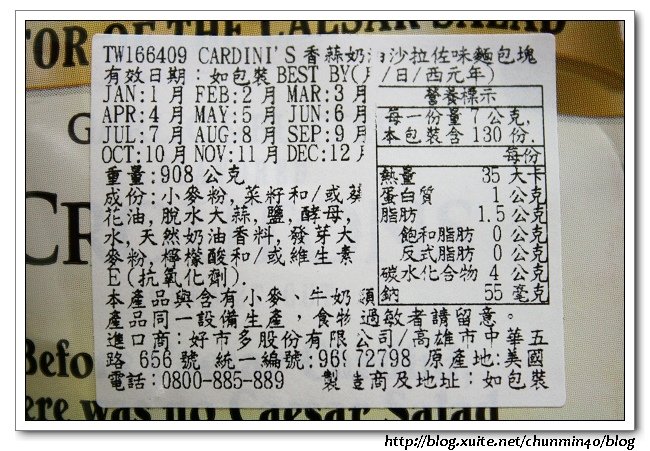 TOR OF THE CAESAR SALAD
TW166409 CARDINI'S 香蒜奶油沙拉佐味麵包塊
有效日期：如包裝BEST BY(月/日/西元年)
JAN:1月 FEB:2月 MAR:3月
APR:4月 MAY:5月 JUN:6月
JUL:7月 AUG:8月 SEP:9月
OCT:10月 NOV:11月 DEC:12月
重量:908 公克
成份:小麥粉,菜籽和/或葵
花油,脫水大蒜,鹽,酵母,
水,天然奶油香料,發芽大
麥粉,檸檬酸和/或維生素
E(抗氧化劑).
營養標示
每一份量 7 公克,
本包裝含 130 份.
每份
熱量 35 大卡
蛋白質 1 公克
脂肪 1.5 公克
飽和脂肪 0 公克
反式脂肪 0 公克
碳水化合物 4 公克
鈉 55 毫克
本產品與含有小麥、牛奶類
產品同一設備生產，食物過敏者請留意。
進口商:好市多股份有限公司/高雄市中華五
路 656 號 統一編號:96972798 原產地:美國
電話:0800-885-889 製造商及地址：如包裝
Befo
ere was no Caesar Salad
http://blog.xuite.net/chunmin40/blog